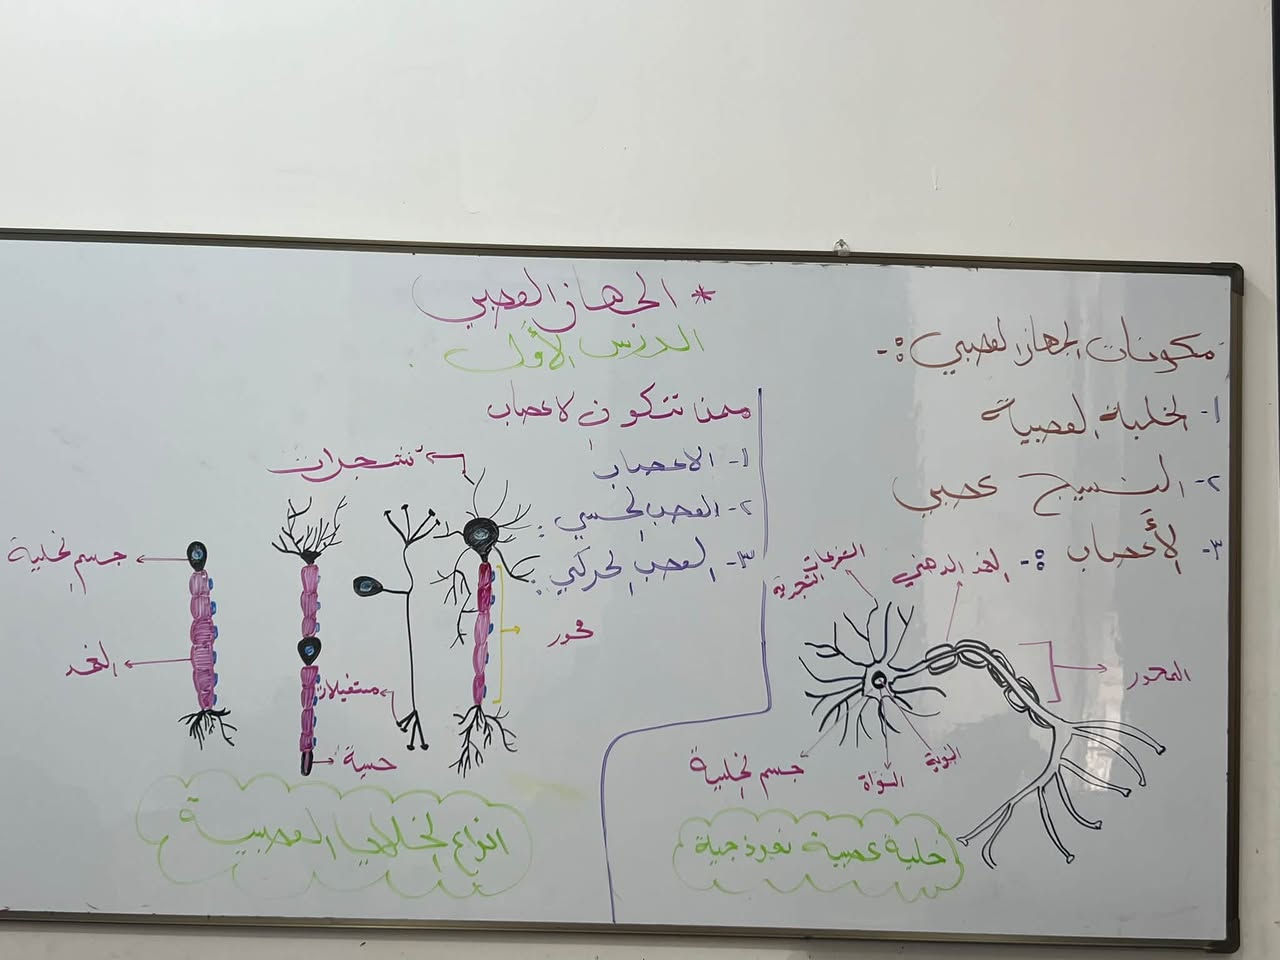 * الجهاز العصبي
الدرس الأول
مكونات الجهاز العصبي :-
١- الخلية العصبية
٢- النسيج عصبي
٣- الأعصاب :-
ممن تتكون لاعصاب
١- الاعصاب
٢- العصب الحسي :
٣- العصب الحركي :
التفرعات
الشجرية
الغمد الدهني
المحور
جسم الخلية
النواة
النوية
خلية عصبية نموذجية
تشجرات
محور
مستقبلات
حسية
جسم الخلية
الغمد
انواع الخلايا العصبية